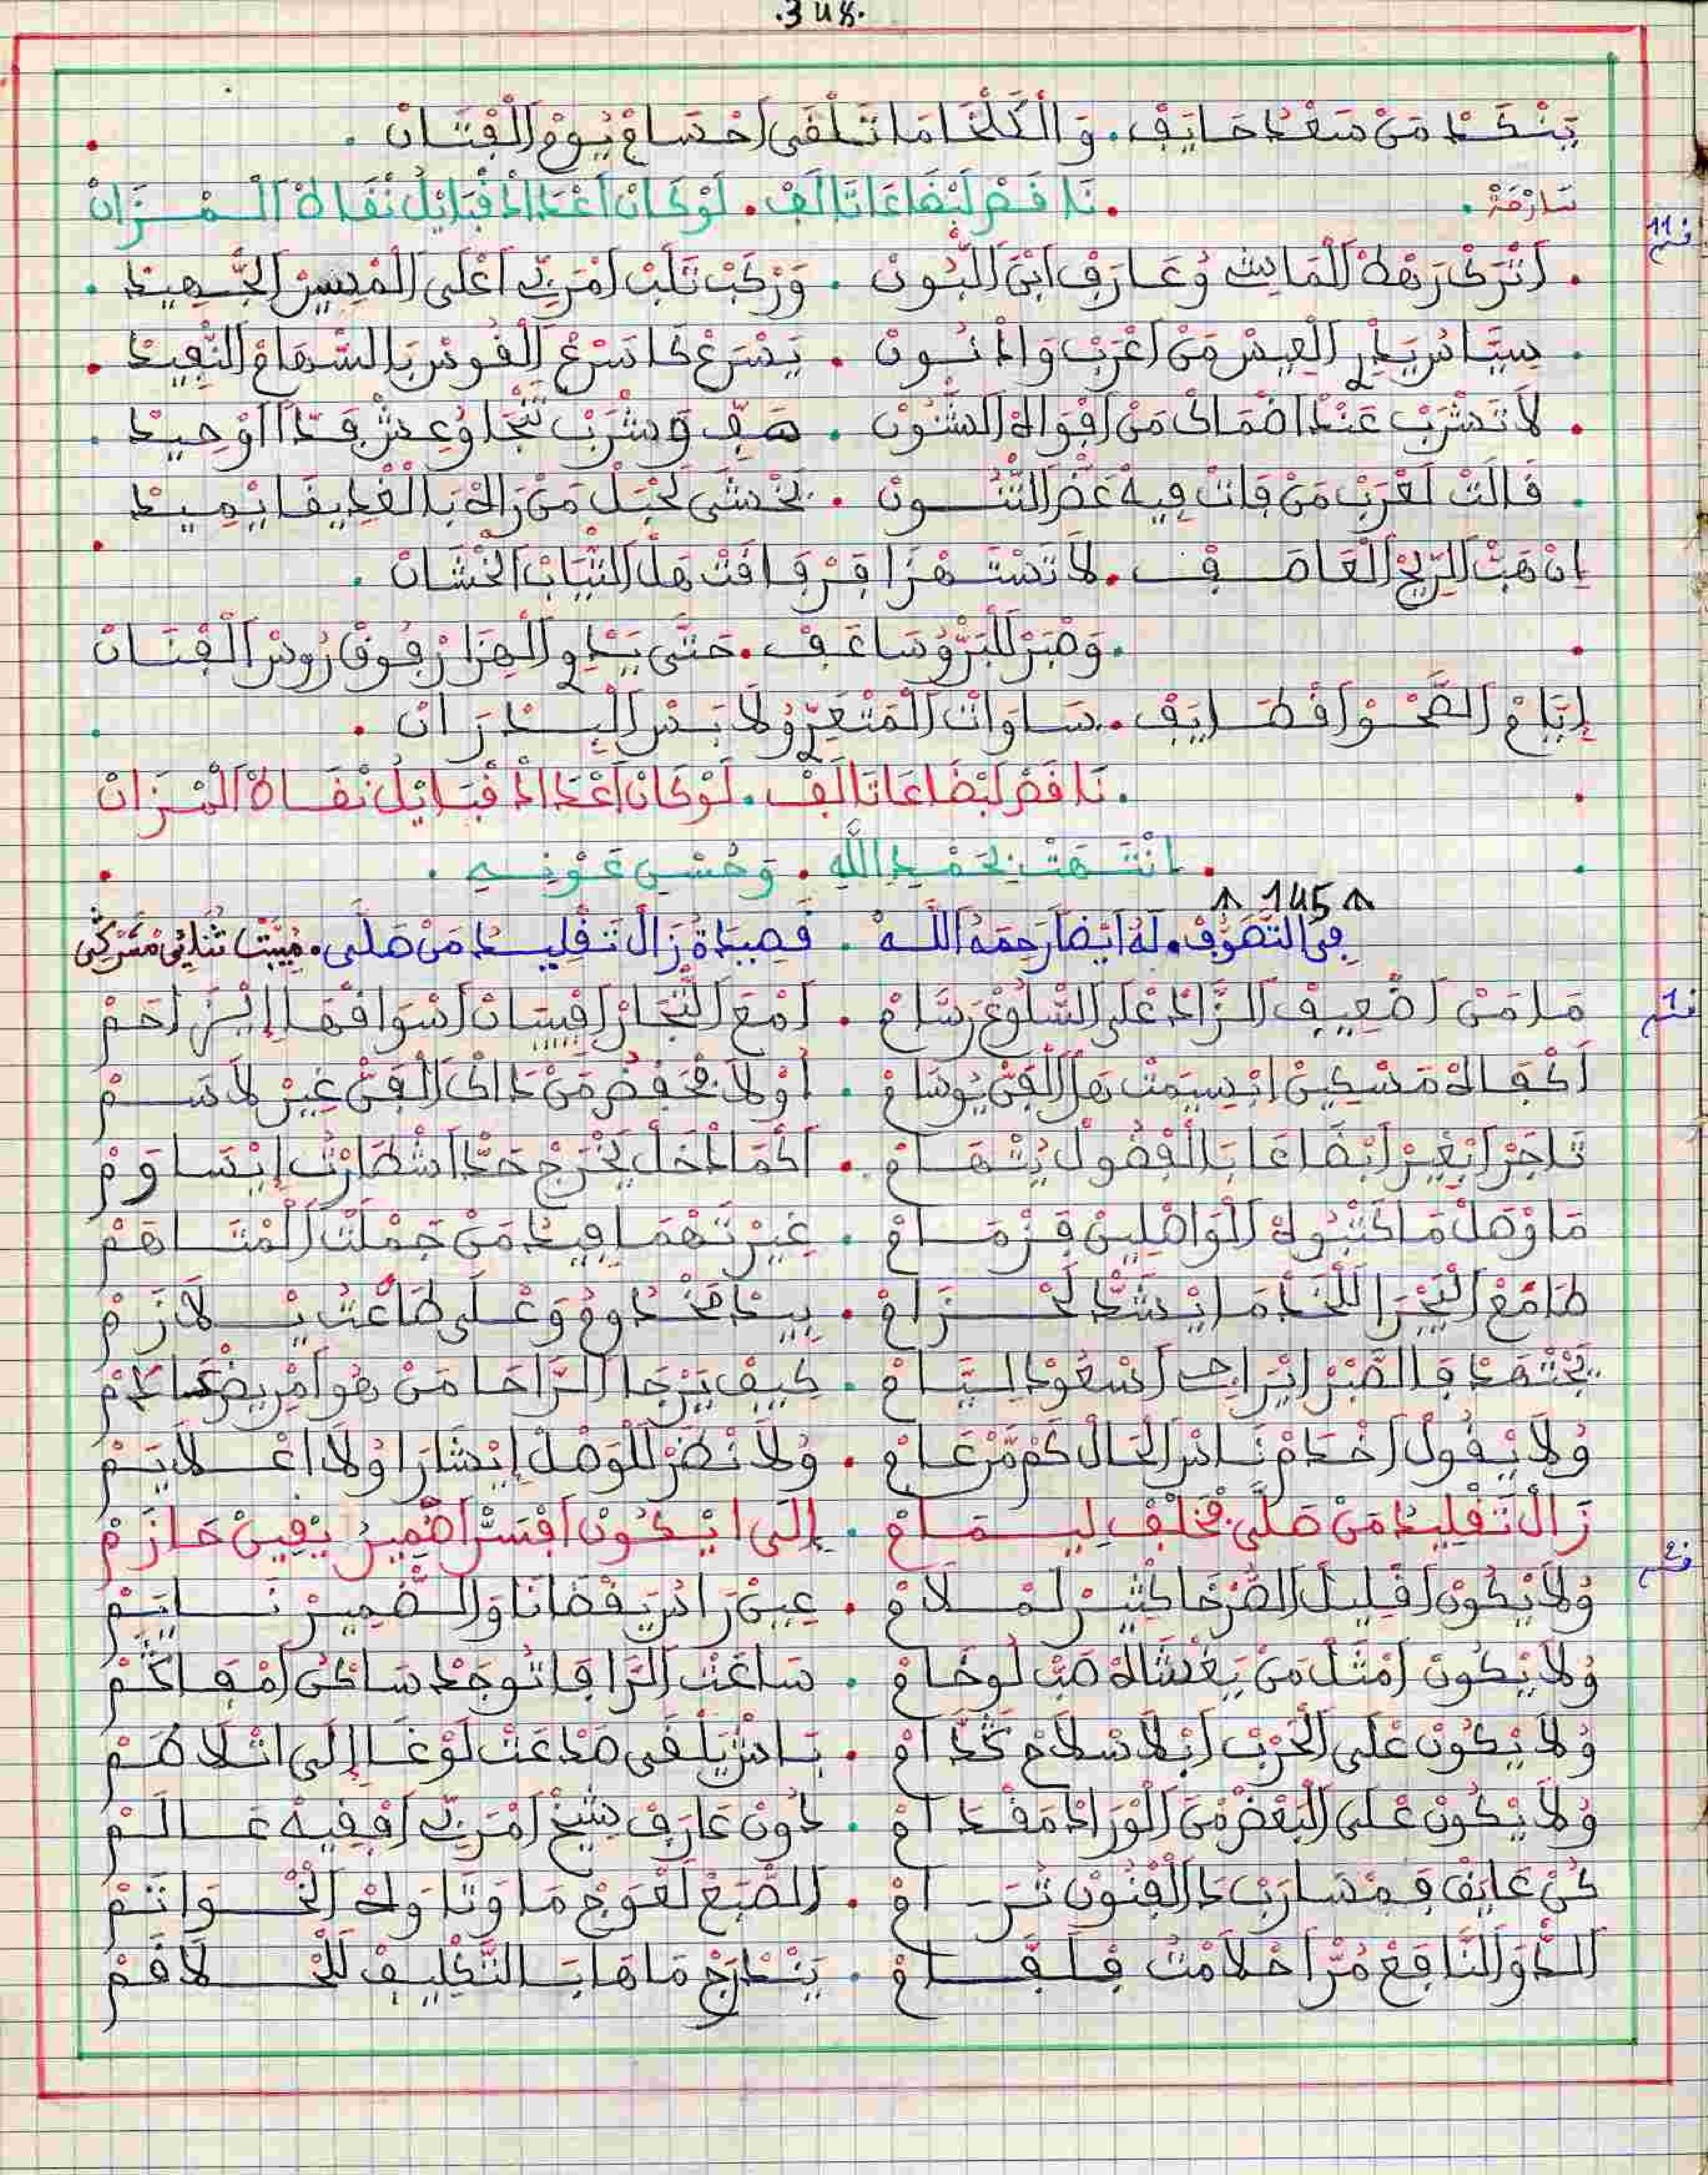 .348.
يَنْكَدْ مَنْ سَعْدُ حَايَفْ. وَالْكَلْخَا مَا تَلْقَى احْسَامْ يُومْ الْفْتَانْ .
سَارْحَةْ . نَاقَصْ لَبْضَاعَا تَالَفْ. لَوْ كَانْ اعْدَادْ قْبَايْلُ نْفَاهْ الْمْزَانْ
قسم 11
. اتْرَكْ رَهْطْ الْمَايتْ وُعَارَفْ ابْنَ اللّْبُونْ . وَرْكَبْ تَلْبْ امْرَبِّي اعْلَى الْمْسِيرْ الجّْهِيدْ .
لَا تَشْرَبْ عَنْدْ اضْمَاكْ مَنْ افْوَاهْ الشّْنُونْ .
قَالَتْ لَعْرَبْ مَنْ فَاتْ فِيهْ عَضّْ التّْنُونْ . يَخْشَى لَحْبَلْ مَنْ رَاهْ بَالْغْدِيفَا يْمِيدْ
إنْ هَبّْ الرِّيحْ الْعَاصَفْ . لَا تَسْتَهْزَا قَرْ وَاقَتْ هَلْ الثْيَابْ الخْشَانْ .
.وَصْبَرْ لَلْبَرْدْ وُسَاعَفْ. حَتَّى يَبْدِي الْهْزَارْ فُوقْ رُوسْ الْفْنَانْ
إيَّامْ الصَّحْوْ اقْطَايَفْ. سَاوَاتْ الْمَتْعَرِّي وُلَابَسْ الْبَدْرَانْ .
.نَاقَصْ لَبْضَاعَا تَالَفْ. لَوْ كَانْ اعْدَادْ قْبَايْلُ نْفَاهْ الْمْزَانْ
. انْتَهَتْ بِحَمْدِ اللهِ . وَحُسْنِ عَوْنِهِ .
↑ 145 ↑
فِي التَّصَوُّفْ. لَهُ أيْضاً رَحِمَهُ اللَّهْ . قَصِيدَةْ زَالْ تَقْلِيدُ مَنْ صَلَّى. مْبَيَّتْ ثُنَائِي مَشَرْكِي
قسم 1
مَا مَنْ اضْعِيفْ الزَّادْ عْلَى السّْلُوعْ رَسَّامْ . امْعَ التُّجَّارْ افْبِيسَانْ اسْوَاقْهَا إيْزَاحَمْ
أكْفَاهْ مَسْكِينْ ابْسِيمْتْ هَلْ الْفَنّْ يُوسَامْ . أوْلَا يَحْفَضْ مَنْ دَاكْ الْفَنّْ غِيرْ لَاسَمْ
تَاجَرْ ابْغِيرْ ابْضَاعَا بَالْفْضُولْ يُتْهَامْ . أكْمَا دْخَلْ يَخْرَجْ حَدّْ اشْطَارْتُ إيْسَاوَمْ
مَا وْصَلْ مَا كَتْبُوهْ الْوَاصْلِينْ فَرْمَامْ . غِيرْ تَهْمَا فِيدُ مَنْ جَمْلَتْ الْمْتَاهَمْ
طَامَعْ الْيَجْرَا لَلْخَدْمَا ايْشَدّْ لَحْزَامْ . بِيدْ مَخْدُومُ وَعْلَى طَاعْتُ يْلَازَمْ
يَجْتَهَدْ فَالصَّبْرْ ايْرَاجِي اسْعُودْ لِيَّامْ . كِيفْ يَرْجَا الرَّاحَا مَنْ هُو امْرِيضْ عَادَمْ
وُلَا يْقُولْ اخْدَمْ نَاسْ الحَالْ كَمْ مَنْ عَامْ . وُلَا نْضَرْ لَلْوَصْلْ إيْشَارَا وُلَا اعْلَايَمْ
زَالْ تَقْلِيدُ مَنْ صَلَّى خَلْفْ لِيمَامْ . إلَى ايْكُونْ افْسَرّْ اضْمِيرُ يْقِينْ حَازَمْ
قسم 2
وُلَا يْكُونْ اقْلِيلْ الصَّرْخَا كْثِيرْ لَمْلَامْ . عِينْ رَاسُ يَقْضَانَا وَالضّْمِيرْ نَايَمْ
وُلَا يْكُونْ امْثَلْ مَنْ يَغْشَاهْ صَبّْ لَوْخَامْ . سَاعَتْ الرَّافَا تُوجَدْ سَاكَنْ امْفَاكَمْ
وُلَا يْكُونْ عْلَى الْحَرْبْ ابْلَا سْلَاحْ كَدَّامْ . بَاشْ يَلْقَى صَدْعَتْ لَوْغَا إلَى اتْلَاطَمْ
وُلَا يْكُونْ عْلَى الْبَعْضْ مَنْ الْوْرَادْ مَقْدَامْ . دُونْ عَارَفْ شِيخْ امْرَبِّي افْقِيهْ عَالَمْ
كُنْ عَايَفْ فَمْسَارَبْ دَا الْفْنُونْ تُرَامْ . الطَّبْعْ لَعْوَجْ مَا وَتَاوَلْهْ الخْوَاتَمْ
الدَّوَ النَّافَعْ مُرّْ احْلَامْتُ فَلَفَّامْ . يَنْدْرَجْ مَا هَابْ التَّكْلِيفْ لَلْحْلَاقَمْ